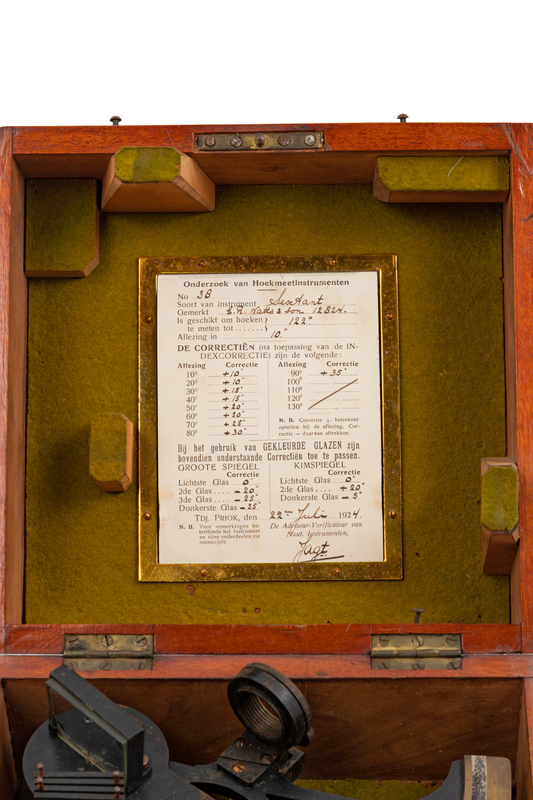 Onderzoek van Hoekmeetinstrumenten
No 38
Soort van instrument Sextant
Gemerkt E.R. Watts & Son 12824.
Is geschikt om hoeken
te meten tot 122°
Aflezing in 10"
DE CORRECTIËN (na toepassing van de IN-
DEXCORRECTIE) zijn de volgende:
Aflezing Correctie Aflezing Correctie
10° +10" 90° +35"
20° +10" 100°
30° +15" 110°
40° +15" 120°
50° +20" 130°
60° +20"
70° +25"
80° +30"
N. B. Correctie + beteekent
optellen bij de aflezing. Cor-
rectie — daarvan aftrekken.
Bij het gebruik van GEKLEURDE GLAZEN zijn
bovendien onderstaande Correctiën toe te passen.
GROOTE SPIEGEL KIMSPIEGEL
Correctie Correctie
Lichtste Glas 0" Lichtste Glas 0"
2de Glas .... -20" 2de Glas .... +20"
3de Glas .... -25" Donkerste Glas -5"
Donkerste Glas -25"
TDJ. PRIOK, den 22en Juli 1924.
N. B. Voor opmerkingen be-
treffende het instrument
en zijne onderdeelen zie
ommezijde.
De Adviseur-Verificateur van
Naut. Instrumenten,